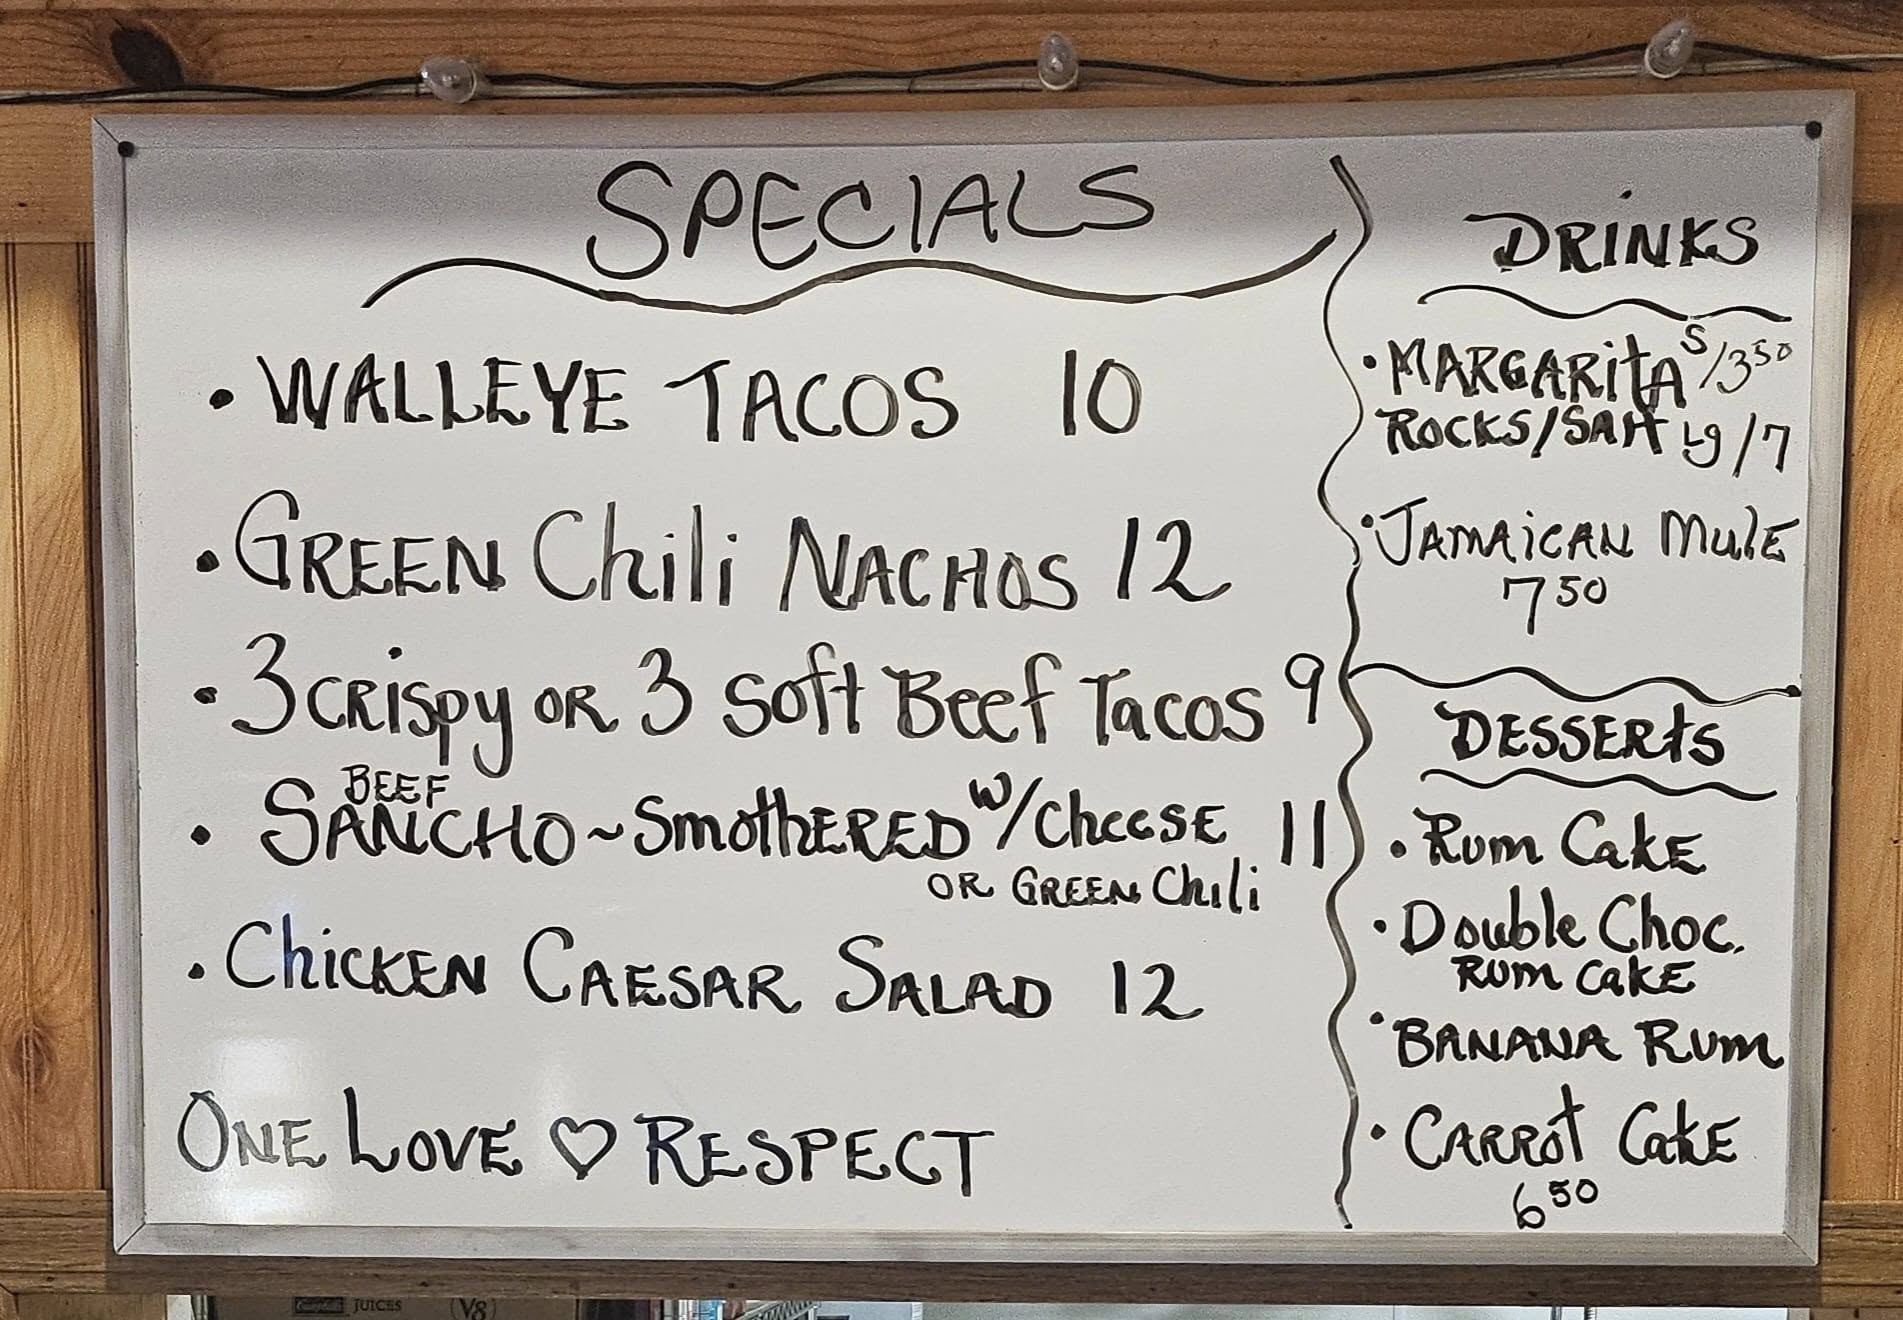 SPECIALS
• WALLEYE TACOS 10
• GREEN Chili NACHOS 12
• 3 CRISPY OR 3 Soft Beef Tacos 9
BEEF
• SANCHO ~ SmothERED W/Cheese 11
OR GREEN Chili
• ChicKEN CAESAR SALAD 12
ONE LOVE ♡ RESPECT
DRiNKS
• MARGARitA S/3 50
ROCKS/SAlt Lg/7
• JAMAiCAN MulE
7 50
DESSERtS
• Rum CaKE
• Double Choc.
Rum CaKE
• BANANA Rum
• CARROt CaKE
6 50
Campbell's JUICES V8